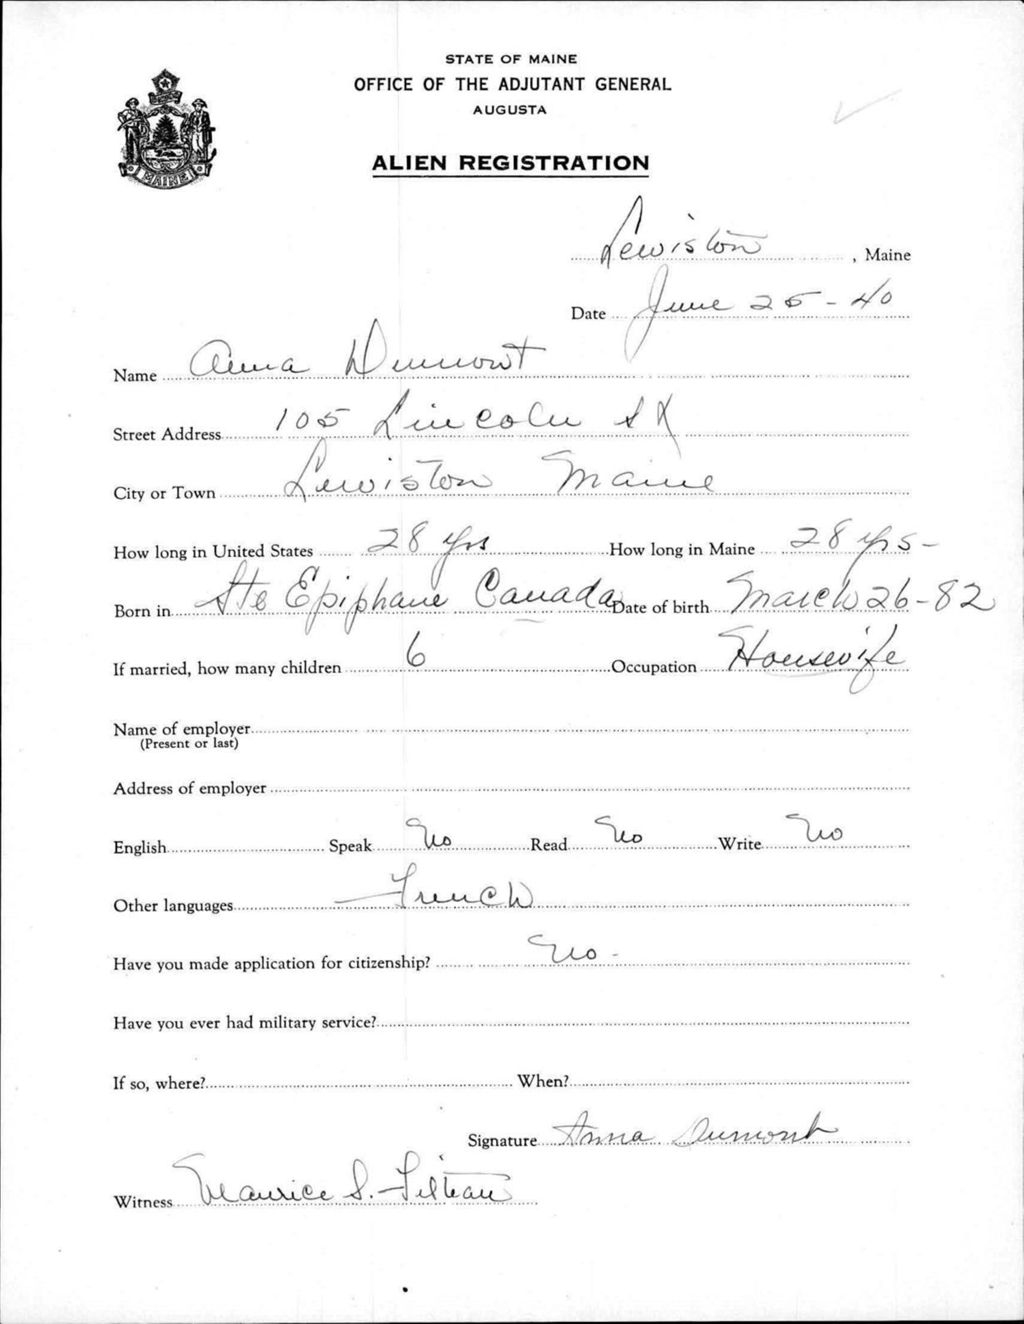 STATE OF MAINE
OFFICE OF THE ADJUTANT GENERAL
AUGUSTA
ALIEN REGISTRATION
MAINE
Lewiston, Maine
Date June 25-40
Name Anna Dumont
Street Address 105 Lincoln St
City or Town Lewiston Maine
How long in United States 28 yrs How long in Maine 28 yrs-
Born in Ste Epiphane Canada Date of birth March 26-82
If married, how many children 6 Occupation Housewife
Name of employer
(Present or last)
Address of employer
English Speak No Read No Write No
Other languages French
Have you made application for citizenship? No-
Have you ever had military service?
If so, where? When?
Signature Anna Dumont
Witness Maurice S. Filteau